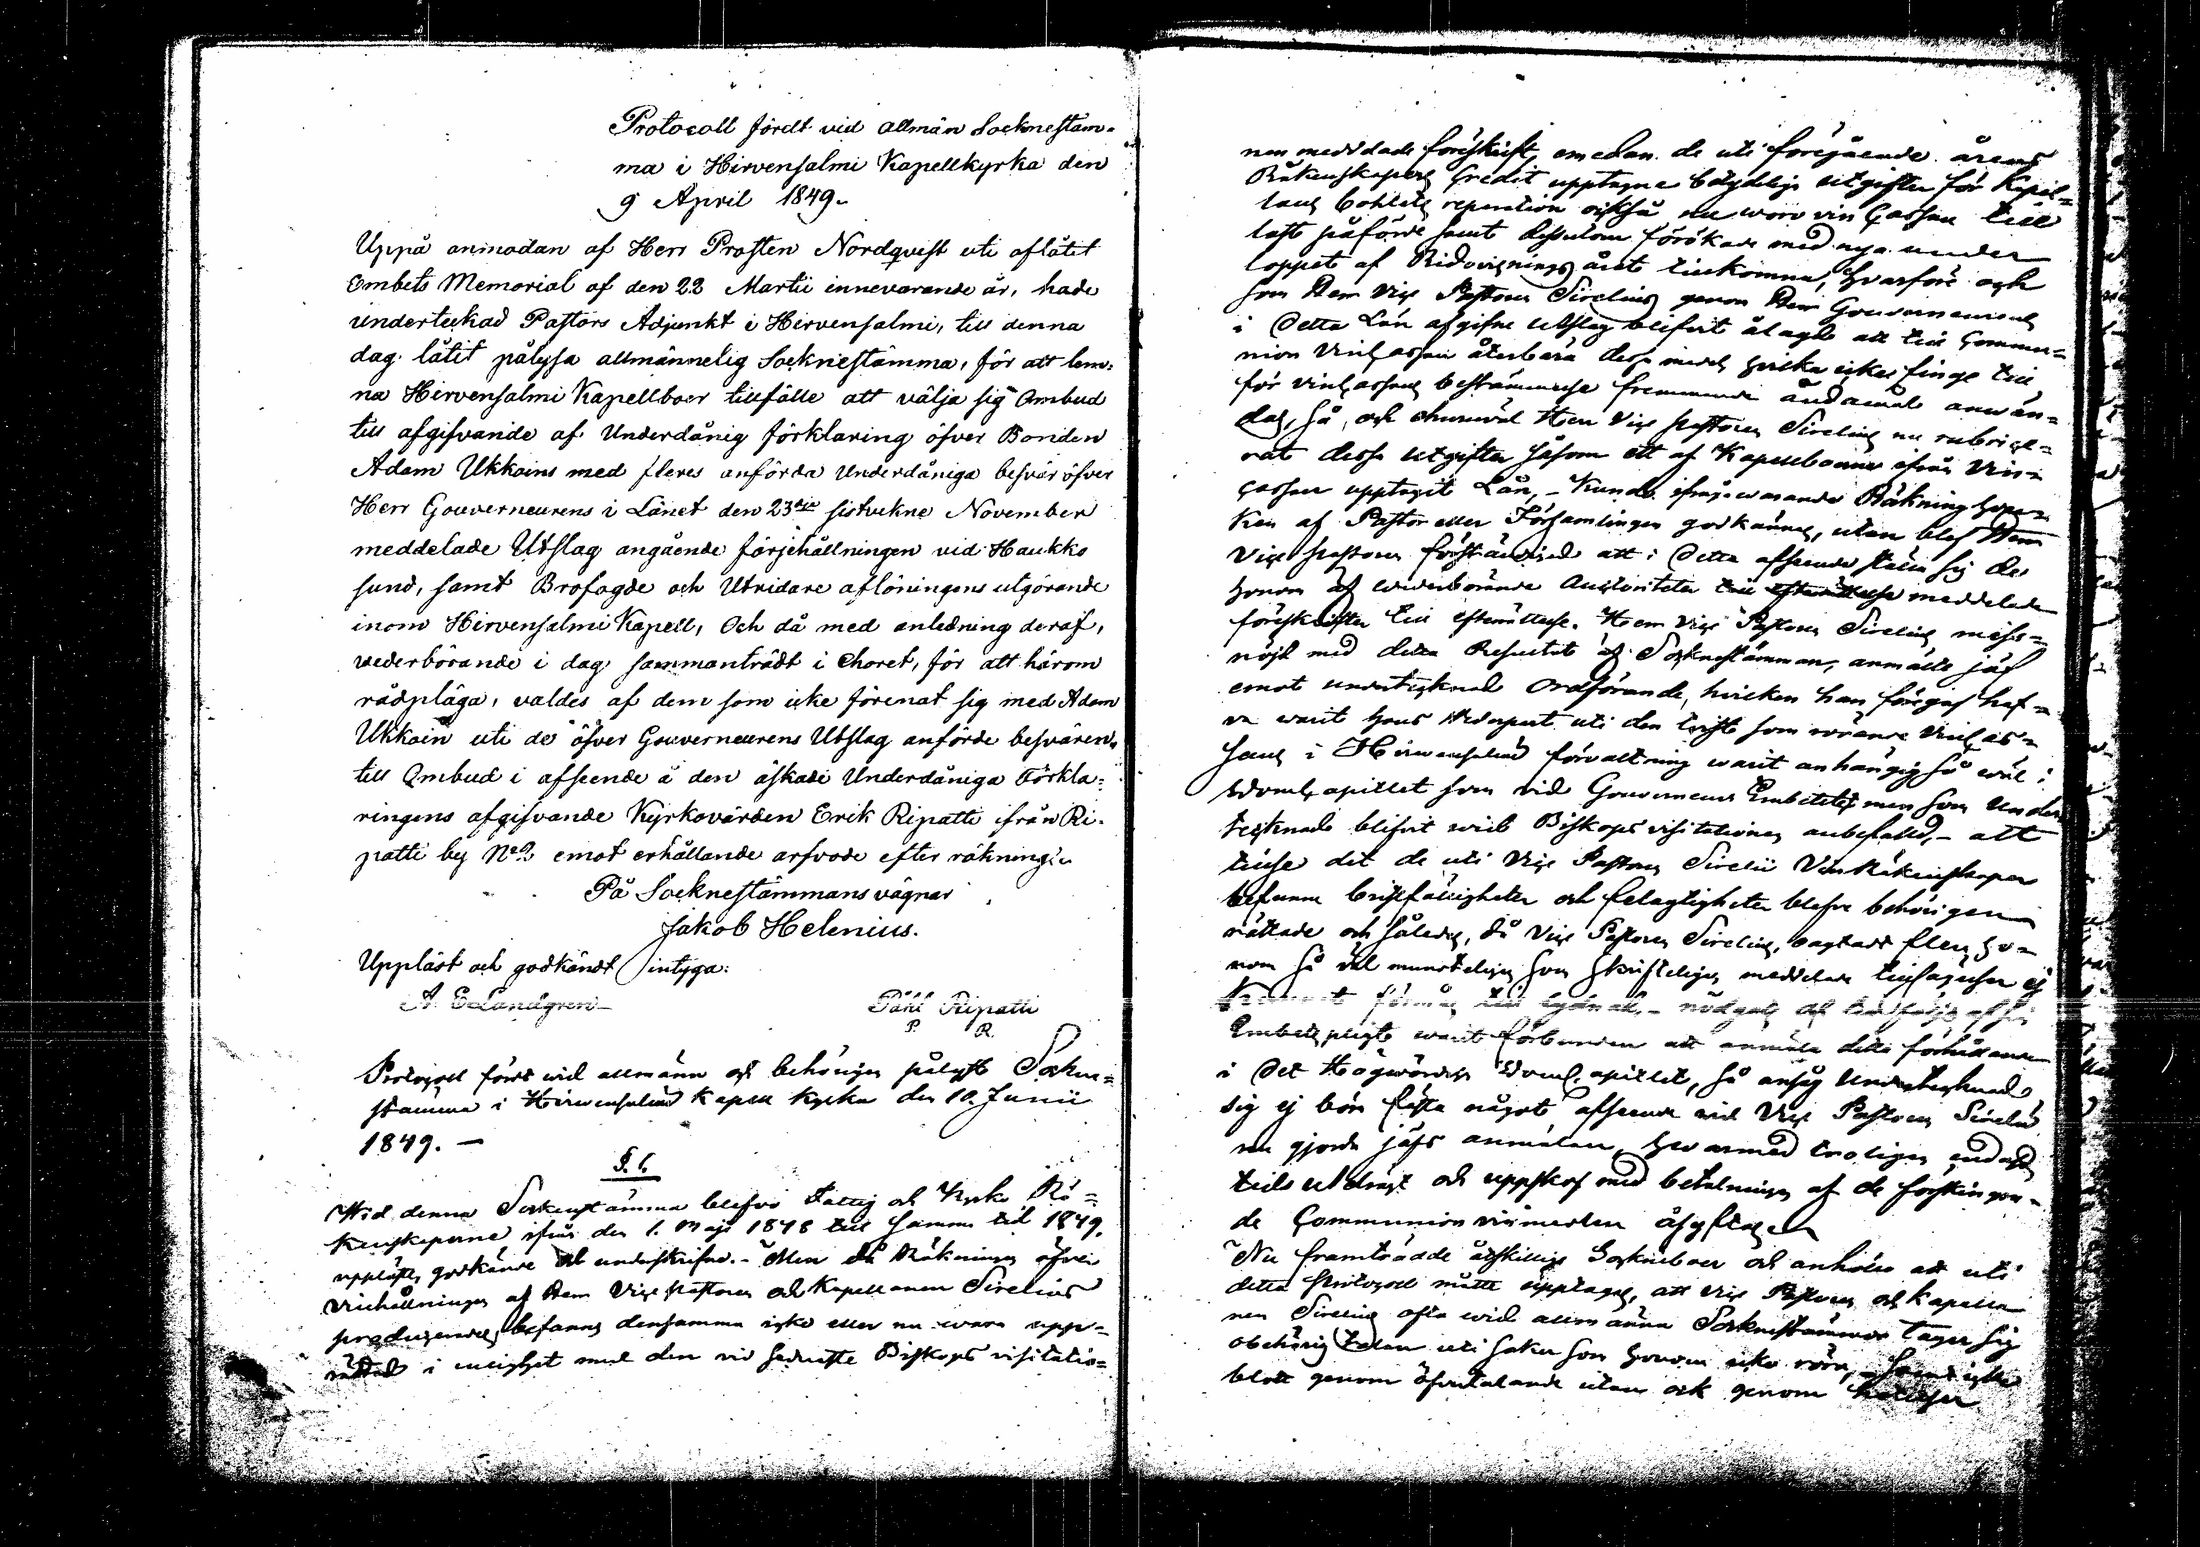 Protocoll fördt vid allmän Socknestäm-
ma i Hirvensalmi Kapellkyrka den
9 April 1849.
Uppå anmodan af Herr Prosten Nordqvist uti aflåtet
Embets Memorial af den 22 Martii innevarande år, hade
undertecknad Pastors Adjunkt i Hirvensalmi, till denna
dag låtit pålysa allmännelig Socknestämma, för att lem-
na Hirvensalmi Kapellboer tillfälle att välja sig Ombud
till afgifvande af Underdånig förklaring öfver Bonden
Adam Ukkoins med fleres anförda Underdåniga besvär öfver
Herr Gouverneurens i Länet den 23dje sistvekne November
meddelade Utslag angående färjehållningen vid Haukko
sund, samt Brofogde och Utridare aflöningens utgörande
inom Hirvensalmi Kapell, Och då med anledning deraf,
vederbörande i dag sammanträdt i Choret, för att härom
rådpläga, valdes af dem som icke förenat sig med Adam
Ukkoin uti de öfver Gouverneurens Utslag anförde besvären,
till Ombud i afseende å den äskade Underdåniga Förkla-
ringens afgifvande Kyrkovärden Erik Ripatti ifrån Ri-
patti by No 2 emot erhållande arfvode efter räkning.
På Socknestämmans vägnar
Jakob Helenius.
Uppläst och godkändt intyga:
A. E. Landgren
Påhl Ripatti
P. R.
Protocoll fördt wid allmänn och behörigen pålyst Sockne-
stämma i Hirwensalmi Kapell Kyrka den 10 Junii
1849. —
§. 1.
Wid denna Sockenstämma blefvo Fattig och Kyrko Rä-
kenskaperne ifrån den 1. Maji 1848 till samma tid 1849.
uppläste, godkände och underskrifne. - Men då Räkningen öfver
Vinhållningen af Herr Vice Pastoren och Kapellanen Sirelius
producerades, befanns densamma icke eller nu wara upp-
rättad i enlighet med den vid sednaste Biskops visitatio-
nen meddelade föreskrift, emedan de uti föregående årens
Räkenskapers Credit upptagne betydelige utgifter för Kapel-
lans Bohlets reparation också nu woro vin Cassan till
last påförde samt dessutom förökade med nya under
loppet af Redovisnings året tillkomna, hvarföre och
som Herr Vice Pastoren Sirelius genom Herr Gouverneurens
i Detta Län afgifne Utslag blifvit ålagd att till Commu-
nion Vincassan återbära dess medel hvilka icke finge till
för vincassans bestämmelse fremmande ändamål använ-
das, så, och ehuruwäl Herr Vice Pastoren Sirelius nu rubrice-
rat dessa utgifter såsom ett af Kapellboerne ifrån Vin-
cassan upptagit Lån, - Kunde ifrågawarande Räkning hvar-
ken af Pastor eller Församlingen godkännas, utan blef Herr
Vice Pastoren förständigad att i Detta afseende ställa sig de
honom af wederbörande Auctoriteter meddelade
föreskrifter till efterrättelse. Herr Vice Pastoren Sirelius miss-
nöjd med detta Resultat af Socknestämman, anmälte jäf
emot undertecknad Ordförande, hvilken han föregaf haf-
va warit hans Wederpart uti den twist som rörande Vincas-
sans i Hirwensalmi förvaltning warit anhängig så wäl i
Domcapitlet som vid Gouverneurs Embetet, men som Under-
tecknad blifvit wid Biskops visitationen anbefalld, - att
tillse det de uti Vice Pastoren Sirelii Vin Räkenskaper
befunna bristfälligheter och felagtigheter blefve behörigen
rättade och således, då Vice Pastoren Sirelius, oagtadt flere ho-
nom så väl munteligen som skrifteligen meddelade tillsägelser ej
nödgats
Embets pligt warit förbunden att anmäla detta förhållande
i Det Högwördiga Domcapitlet, så ansåg Undertecknad
sig ej böra fästa något afseende wid Vice Pastoren Sirelii
nu gjorda jäfs anmälan, hvarmed troligen endast
tids utdrägt och uppskof med betalningen af de förskingra-
de Communion vinmedlen åsyftades.
Nu framträdde åtskillige Sockneboer och anhöllo att uti
detta Protocoll måtte upptagas, att Vice Pastoren och Kapella-
nen Sirelius ofta wid allmänna Socknestämmor tager sig
obehörig talan uti saker som honom icke röra, samt icke
blott genom öfvertalande utan ock genom hotelser